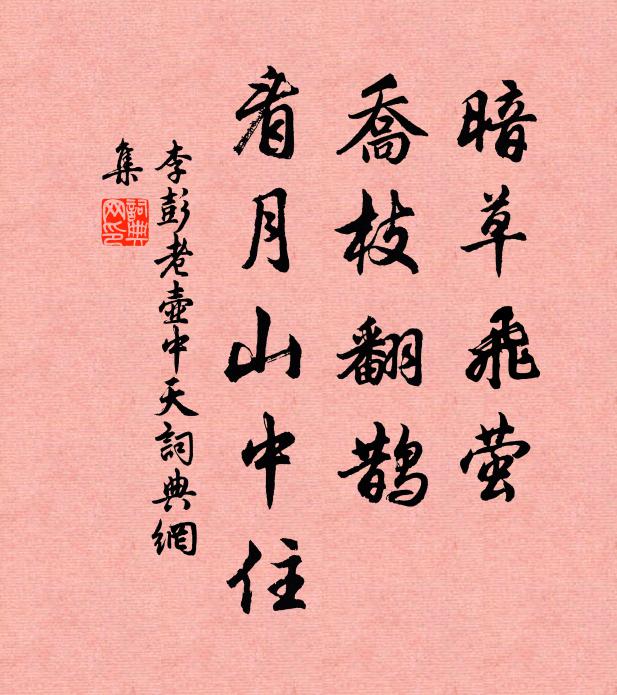 暗草飛萤
喬枝翻鵲
看月山中住
李彭老壺中天詞典網
集
詞典
网印